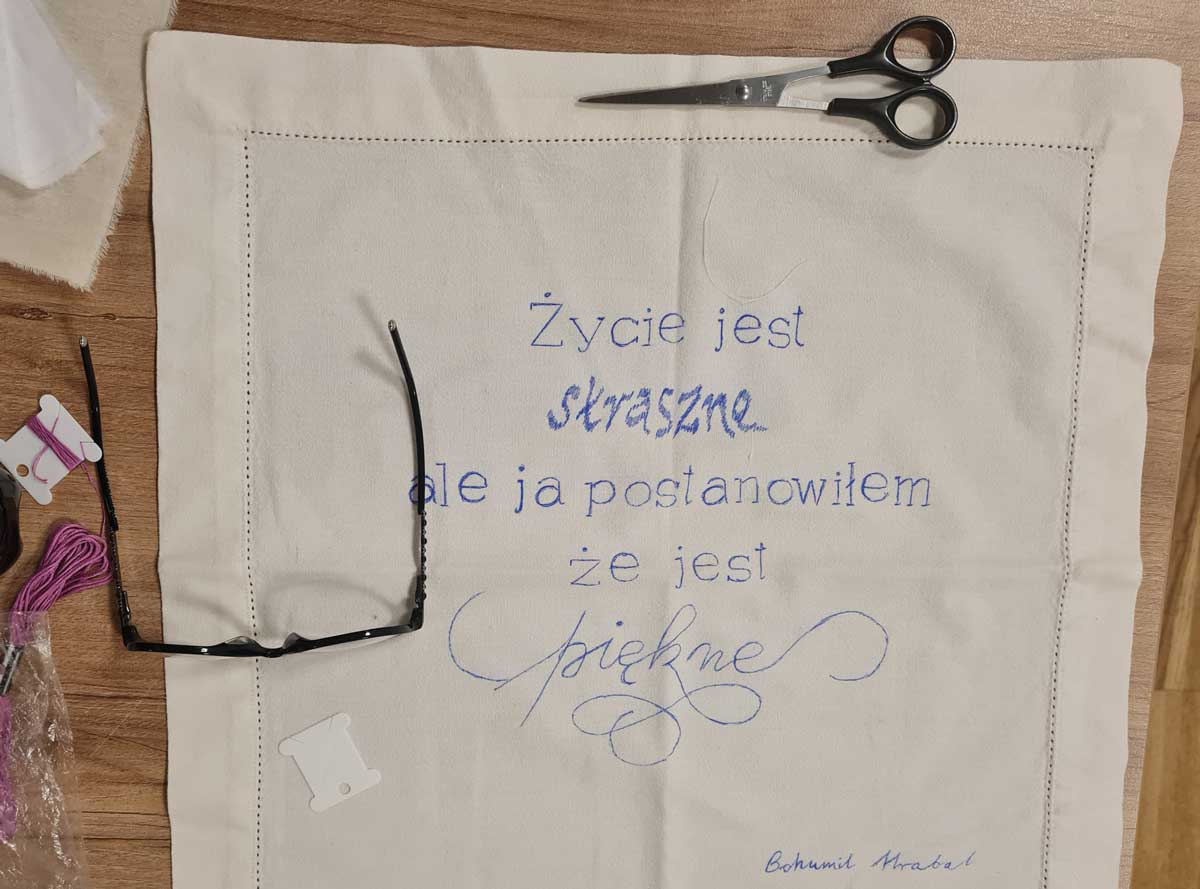 Życie jest
straszne
ale ja postanowiłem
że jest
piękne
Bohumil Hrabal